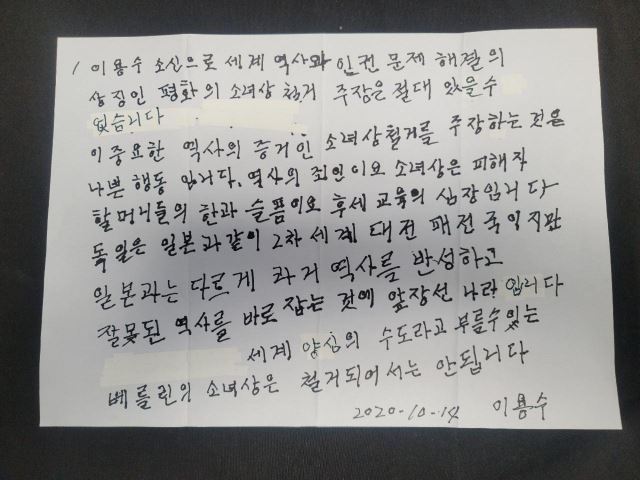 / 이용수 소신으로 세계 역사와 인권 문제 해결의
상징인 평화의 소녀상 철거 주장은 절대 있을수
없습니다
이 중요한 역사의 증거인 소녀상철거를 주장하는 것은
나뿐 행동 입니다. 역사의 죄인이요 소녀상은 피해자
할머니들의 한과 슬픔이요 후세 교육의 심장입니다
독일은 일본과같이 2차 세계 대전 패전국이지만
일본과는 다르게 과거 역사를 반성하고
잘못된 역사를 바로 잡는 것에 앞장선 나라 입니다
세계 양심의 수도라고 부를수있는
베를린의 소녀상은 철거되어서는 안됩니다
2020-10-14 이용수